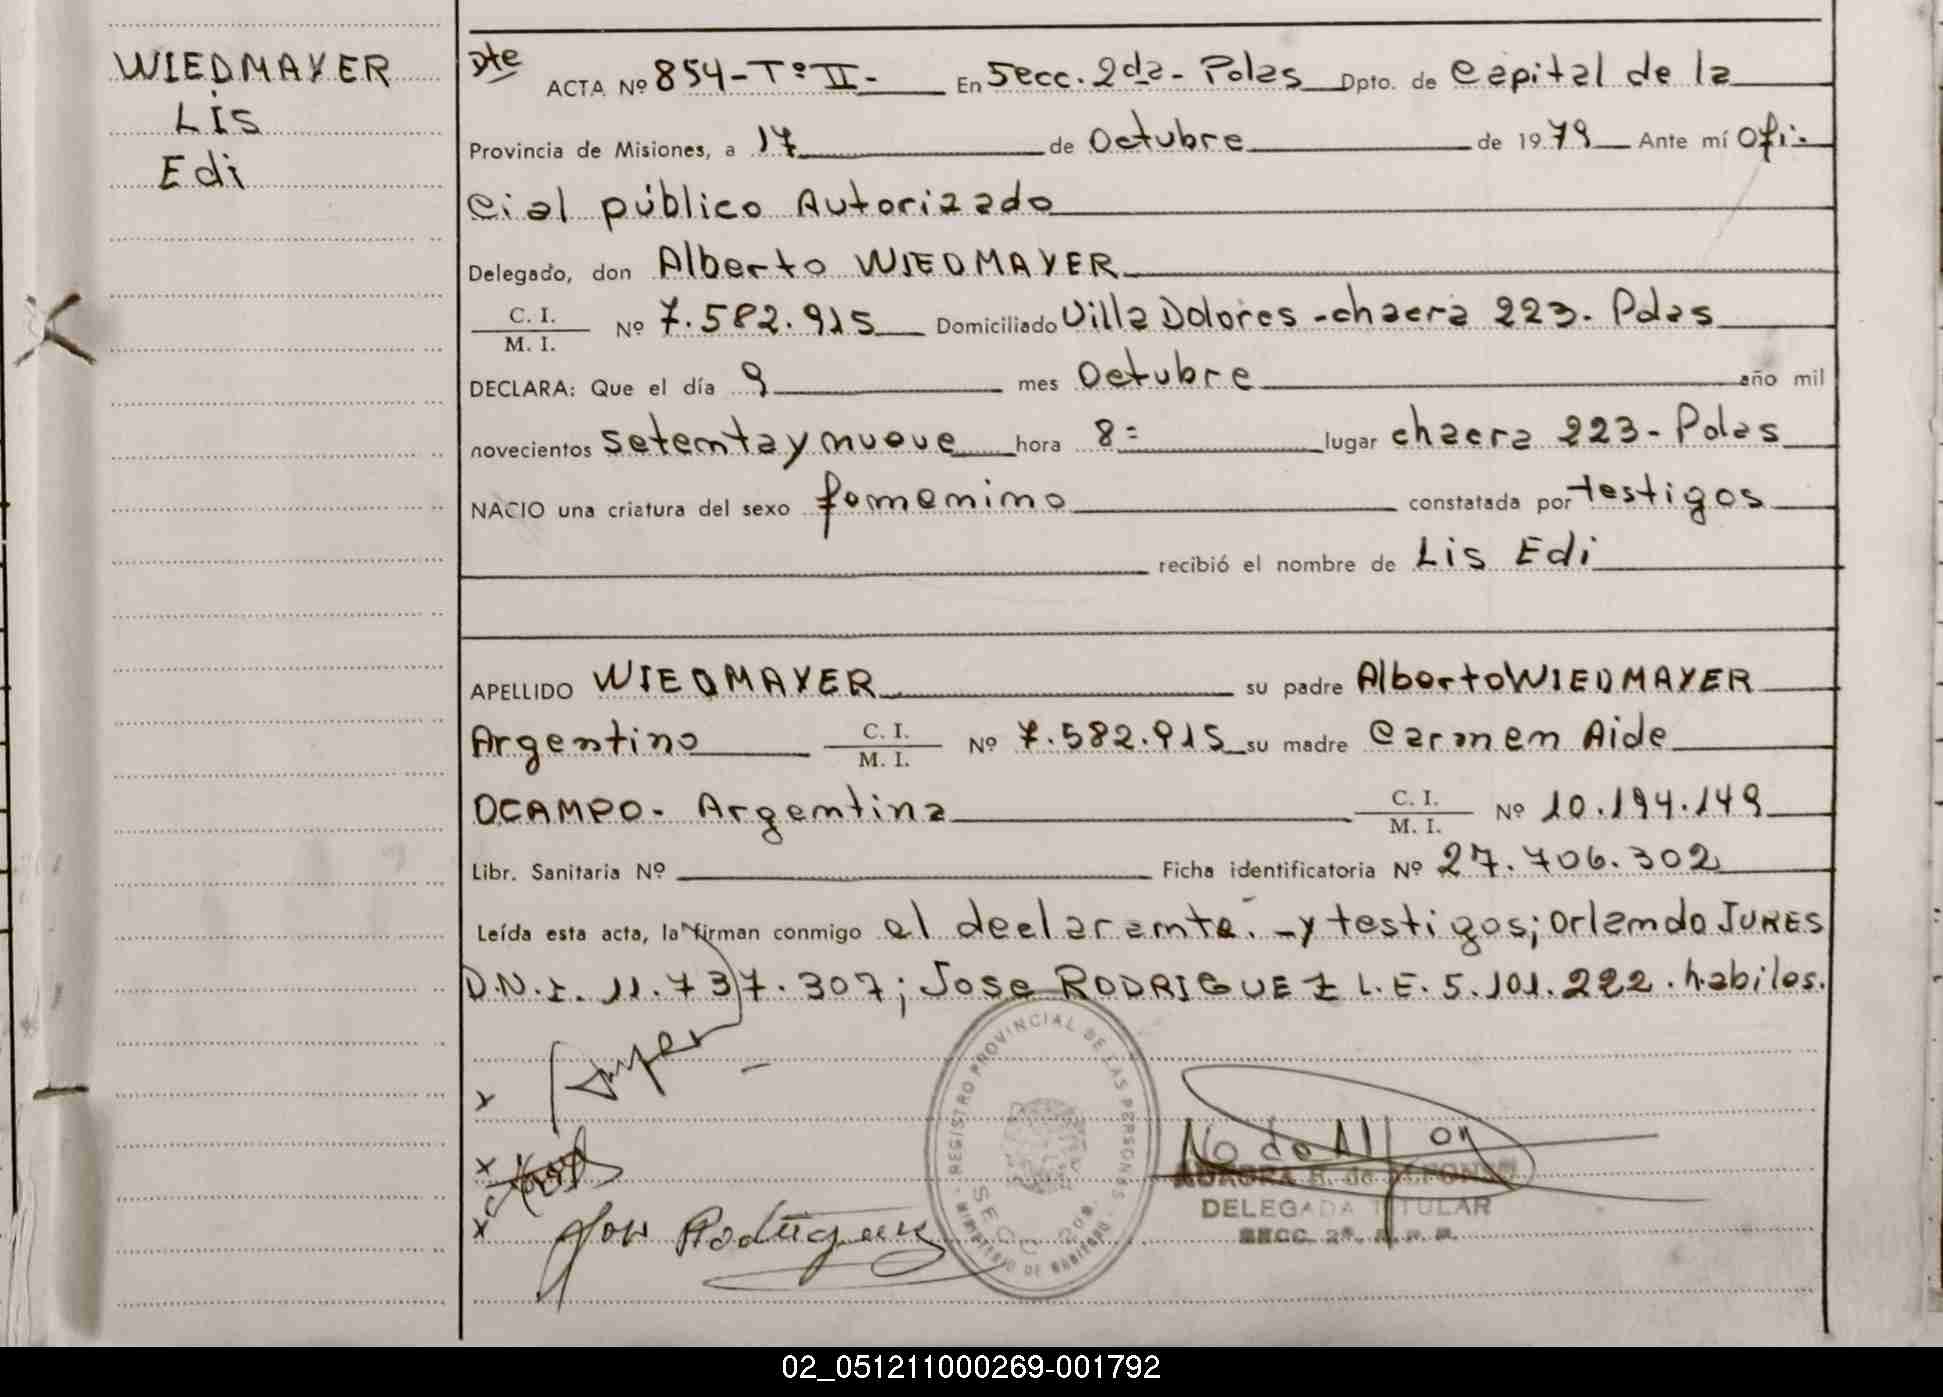 WIEDMAYER
Lis
Edi
Dte
ACTA Nº 854-Tº II- En Secc. 2da- Pdas Dpto. de Capital de la
Provincia de Misiones, a 17 de Octubre de 1979 Ante mí Ofi-
cial público Autorizado
Delegado, don Alberto WIEDMAYER
C. I.
M. I.
Nº 7.582.915 Domiciliado Villa Dolores -chacra 223- Pdas
DECLARA: Que el día 9 mes Octubre año mil
novecientos setenta y nueve hora 8= lugar chacra 223- Pdas
NACIO una criatura del sexo femenino constatada por testigos
recibió el nombre de Lis Edi
APELLIDO WIEDMAYER su padre Alberto WIEDMAYER
Argentino C. I. M. I. Nº 7.582.915 su madre Carmen Aide
OCAMPO- Argentina C. I. M. I. Nº 10.194.149
Libr. Sanitaria Nº Ficha identificatoria Nº 27.706.302
Leída esta acta, la firman conmigo el declarante.-y testigos; Orlando JUNES
D.N.I. 11.737.307; Jose RODRIGUEZ L.E. 5.101.222. habiles.
x
x
x Jose Rodriguez
REGISTRO PROVINCIAL DE LAS PERSONAS
SECC. 2da.
MINISTERIO DE
N. de Alfon
AURORA N. de ALFONZO
DELEGADA TITULAR
SECC. 2ª. R. P. P.
02_051211000269-001792